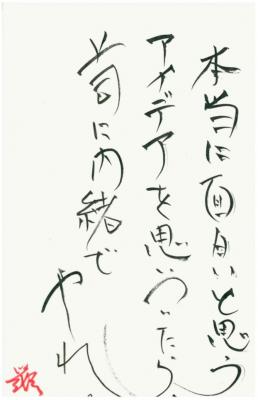 本当に面白いと思う
アイデアを思いついたら、
皆に内緒で
やれ